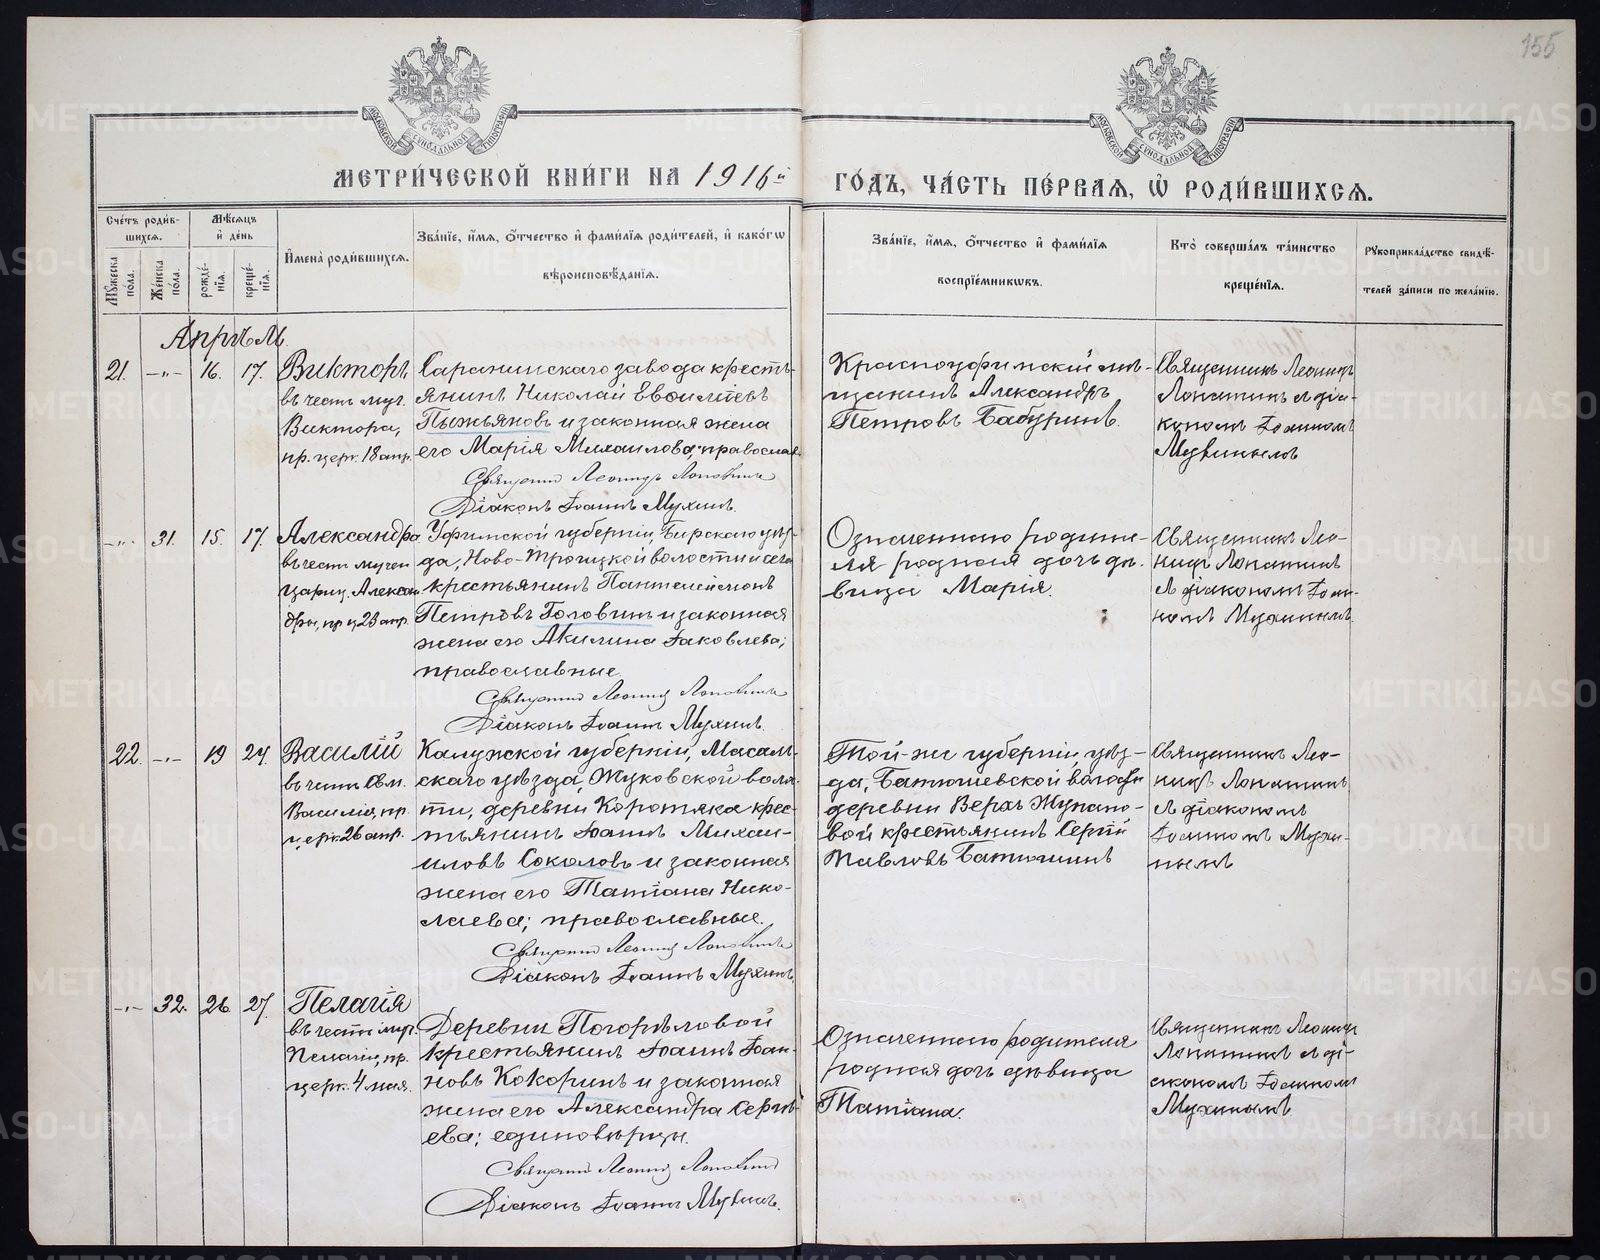 155
МОСКОВСКОЙ СѴНОДАЛЬНОЙ ТИПОГРАФІИ
МОСКОВСКОЙ СѴНОДАЛЬНОЙ ТИПОГРАФІИ
МЕТРИ́ЧЕСКОЙ КНИ́ГИ НА 1916й ГО́ДЪ, ЧА́СТЬ ПЕ́РВАѦ, Ѡ҆ РОДИ́ВШИХСѦ.
Сче́тъ роди́в-
шихсѧ.
Мꙋ́жеска по́ла.
Же́нска по́ла.
Мѣ́сѧцъ
и҆ де́нь
рожде́-
нїѧ.
креще́-
нїѧ.
И҆мена̀ роди́вшихсѧ.
Зва́нїе, и҆́мѧ, ѻ҆́тчество и҆ фами́лїѧ роди́телей, и҆ како́гѡ
вѣроисповѣ́данїѧ.
Зва́нїе, и҆́мѧ, ѻ҆́тчество и҆ фами́лїѧ
воспрїе́мникѡвъ.
Кто̀ соверша́лъ та́инство
креще́нїѧ.
Рꙋкоприкла́дство свидѣ́-
телей за́писи по жела́нїю.
Апрѣль.
21. -"- 16. 17. Викторъ
въ честь муч.
Виктора,
пр. церк. 18 апр.
Саранинскаго завода кресть-
янинъ Николай Евѳиміевъ
Пыжьяновъ и законная жена
его Марія Михаилова; православ.
Священникъ Леонидъ Лопатинъ
Діаконъ Іоаннъ Мухинъ.
Красноуфимскій мѣ-
щанинъ Александръ
Петровъ Бабуринъ.
Священникъ Леонидъ
Лопатинъ съ діа-
кономъ Іоанномъ
Мухинымъ
-"- 31. 15. 17. Александра
въ честь мучен
цариц. Алексан
дры, пр ц 23 апр.
Уфимской губерніи, Бирскаго уѣз-
да, Ново-Троицкой волости и села
крестьянинъ Пантелеимонъ
Петровъ Головин и законная
жена его Акилина Іаковлева;
православные
Священник Леонид Лопатинъ
Діаконъ Іоаннъ Мухинъ.
Означеннаго родите-
ля родная дочь дѣ-
вица Марія.
Священникъ Лео-
нидъ Лопатинъ
съ діакономъ Іоан-
номъ Мухинымъ.
22. -"- 19 24. Василій
въ честь Свм.
Василія, пр.
церк. 26 апр.
Калужской губерніи, Масаль-
скаго уѣзда, Жуковской волос-
ти, деревни Коротяка крес-
тьянинъ Іоаннъ Михаи-
ловъ Соколовъ и законная
жена его Татіана Нико-
лаева; православные.
Священник Леонид Лопатинъ
Діаконъ Іоаннъ Мухинъ.
Той-же губерніи, уѣз-
да, Батюшевской волости
деревни Верхъ Жупано-
вой крестьянинъ Сергій
Павловъ Батюшинъ
Священникъ Лео-
нидъ Лопатинъ
съ діакономъ
Іоанномъ Мухи-
нымъ
-"- 32. 26 27. Пелагія
въ честь муч.
Пелагіи, пр.
церк. 4 мая.
Деревни Погорѣловой
крестьянинъ Іоаннъ Іоан-
новъ Кокоринъ и законная
жена его Александра Сергѣ-
ева; единовѣрцы.
Священник Леонид Лопатинъ
Діаконъ Іоаннъ Мухинъ.
Означеннаго родителя
родная дочь дѣвица
Татіана.
Священникъ Леонидъ
Лопатинъ съ ді-
акономъ Іоанномъ
Мухинымъ
METRIKI.GASO-URAL.RU